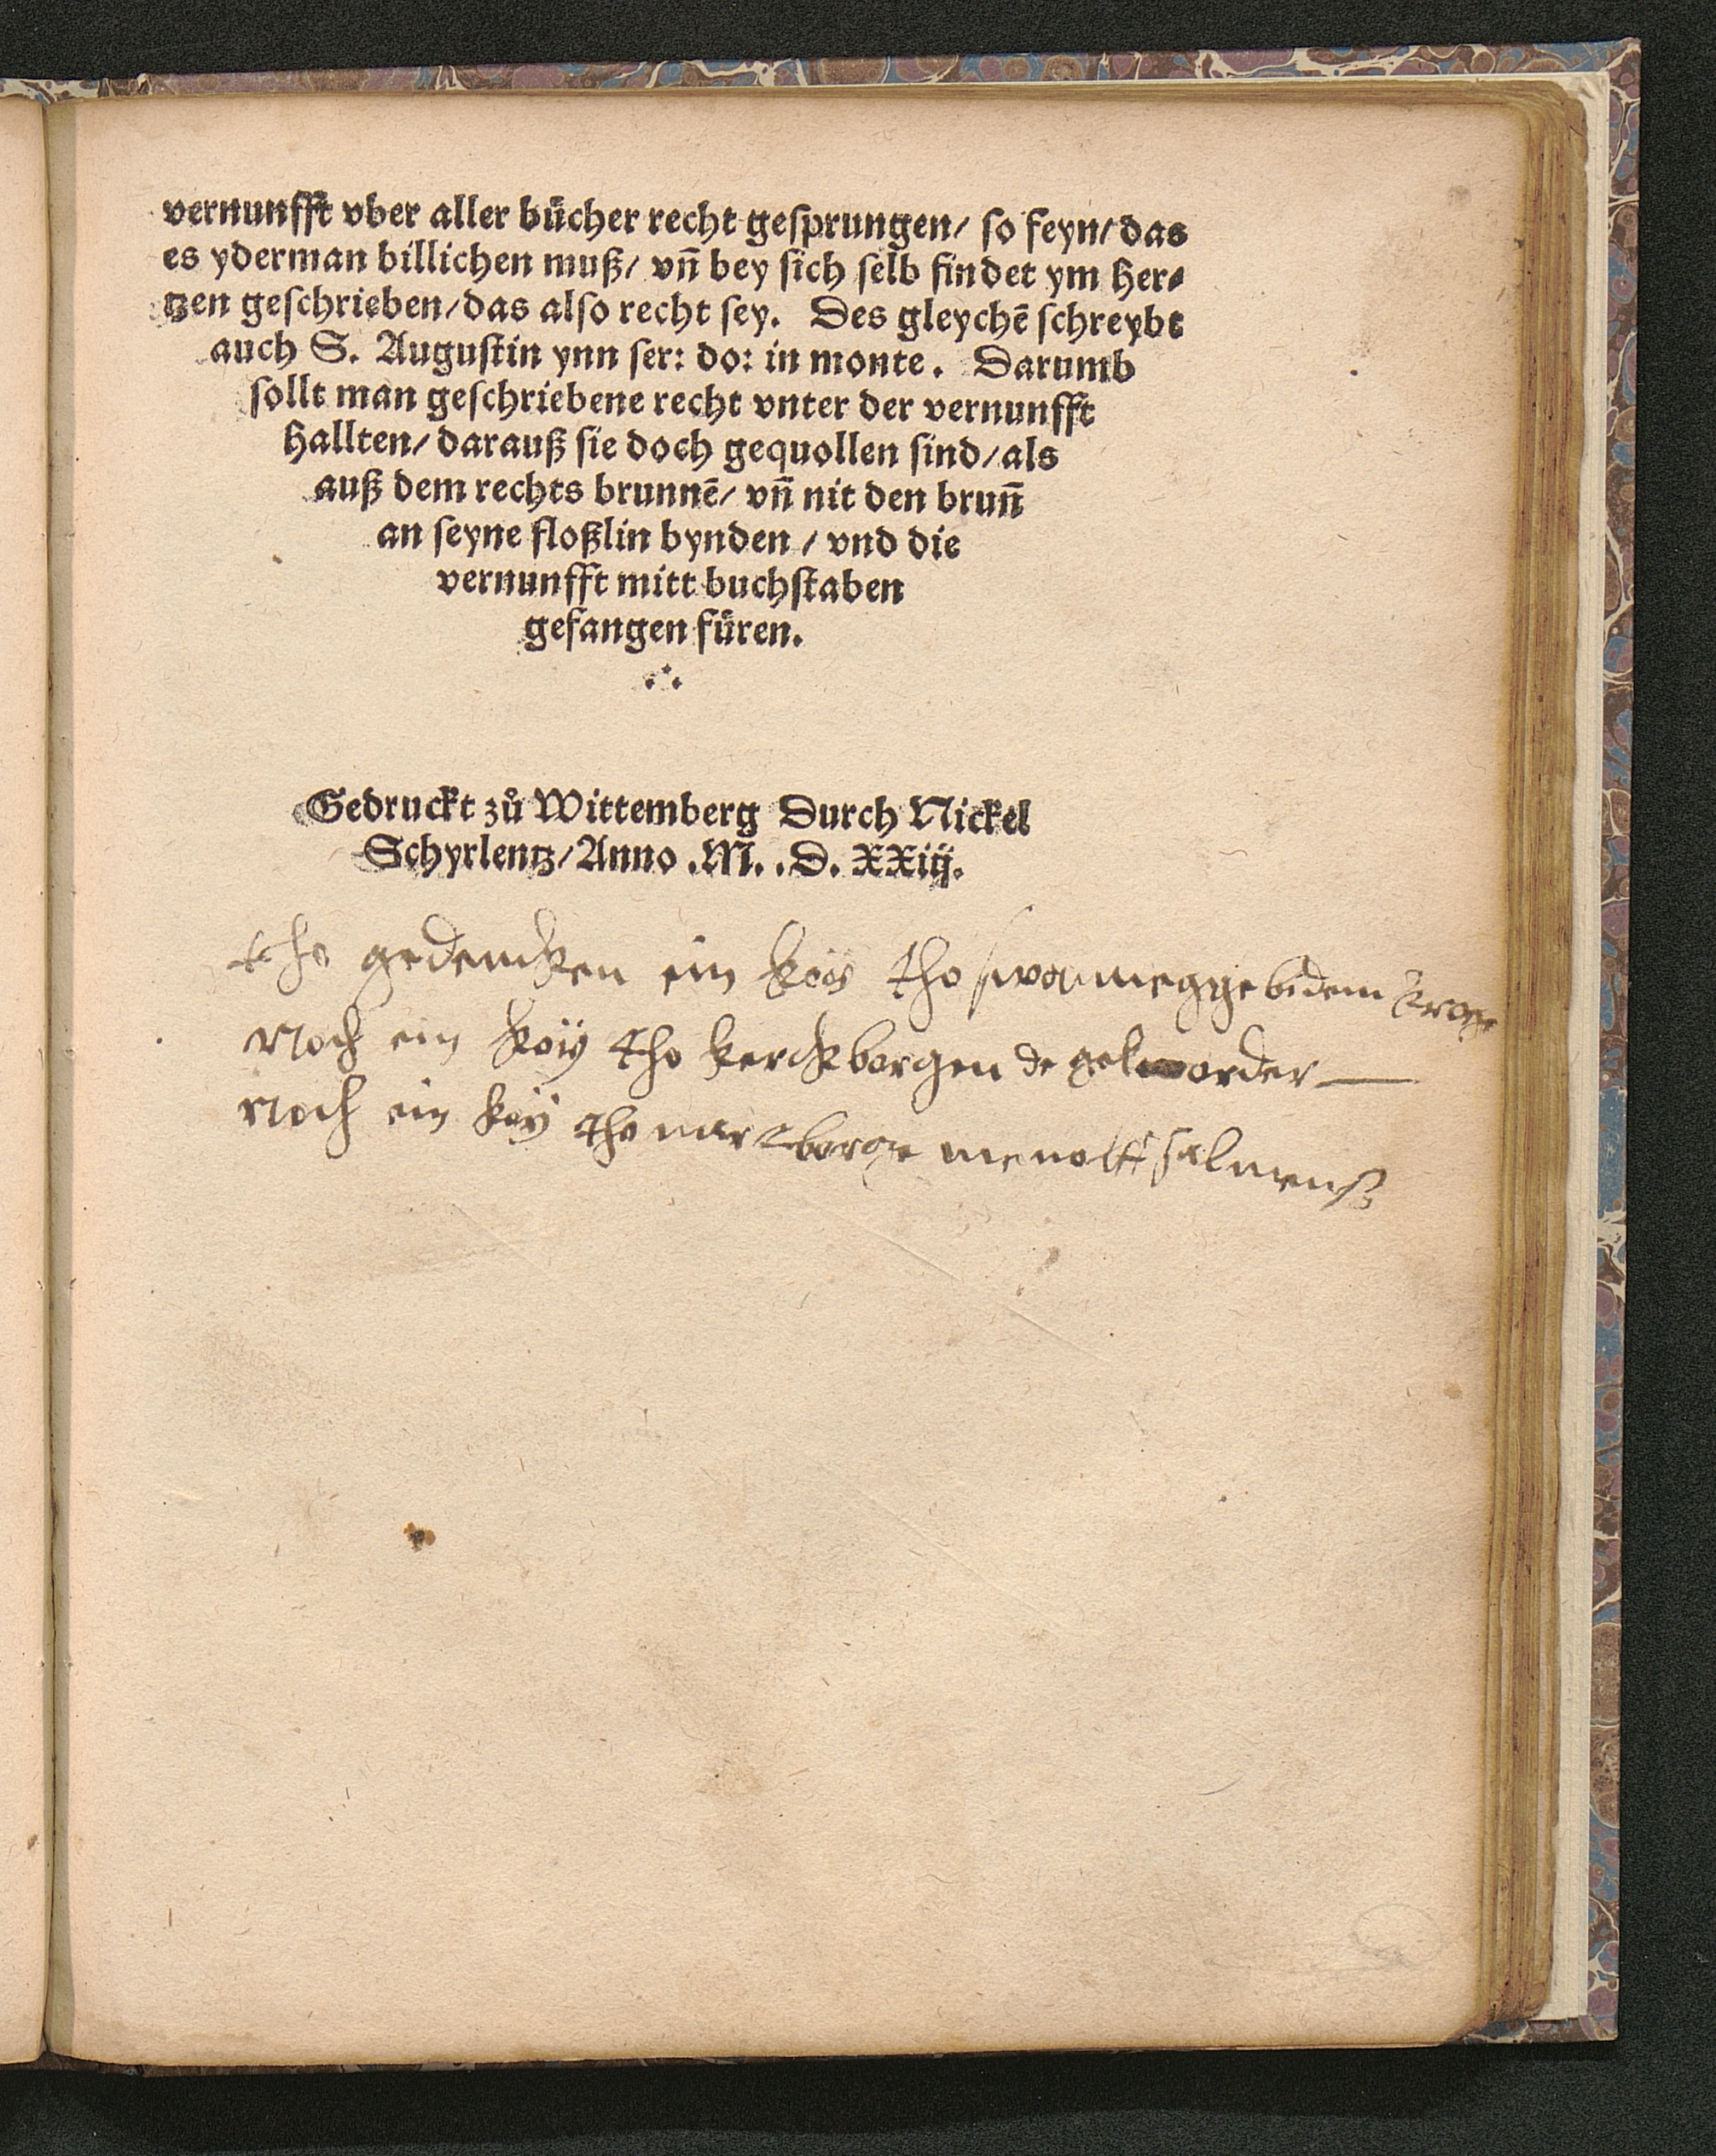 vernunfft vber aller bücher recht gesprungen/ so feyn/ das
es yderman billichen muß/ vñ bey sich selb findet ym her⸗
tzen geschrieben/ das also recht sey. Des gleychē schreybt
auch S. Augustin ynn ser: do: in monte. Darumb
sollt man geschriebene recht vnter der vernunfft
hallten/ darauß sie doch gequollen sind/ als
auß dem rechts brunnē/ vñ nit den brun̄
an seyne floßlin bynden / vnd die
vernunfft mitt buchstaben
gefangen füren.
Gedruckt zů Wittemberg Durch Nickel
Schyrlentz/ Anno .M. .D. XXiij.
tho gedencken ein koy tho
Noch ein koy tho kerckborgen de
Noch ein koy tho